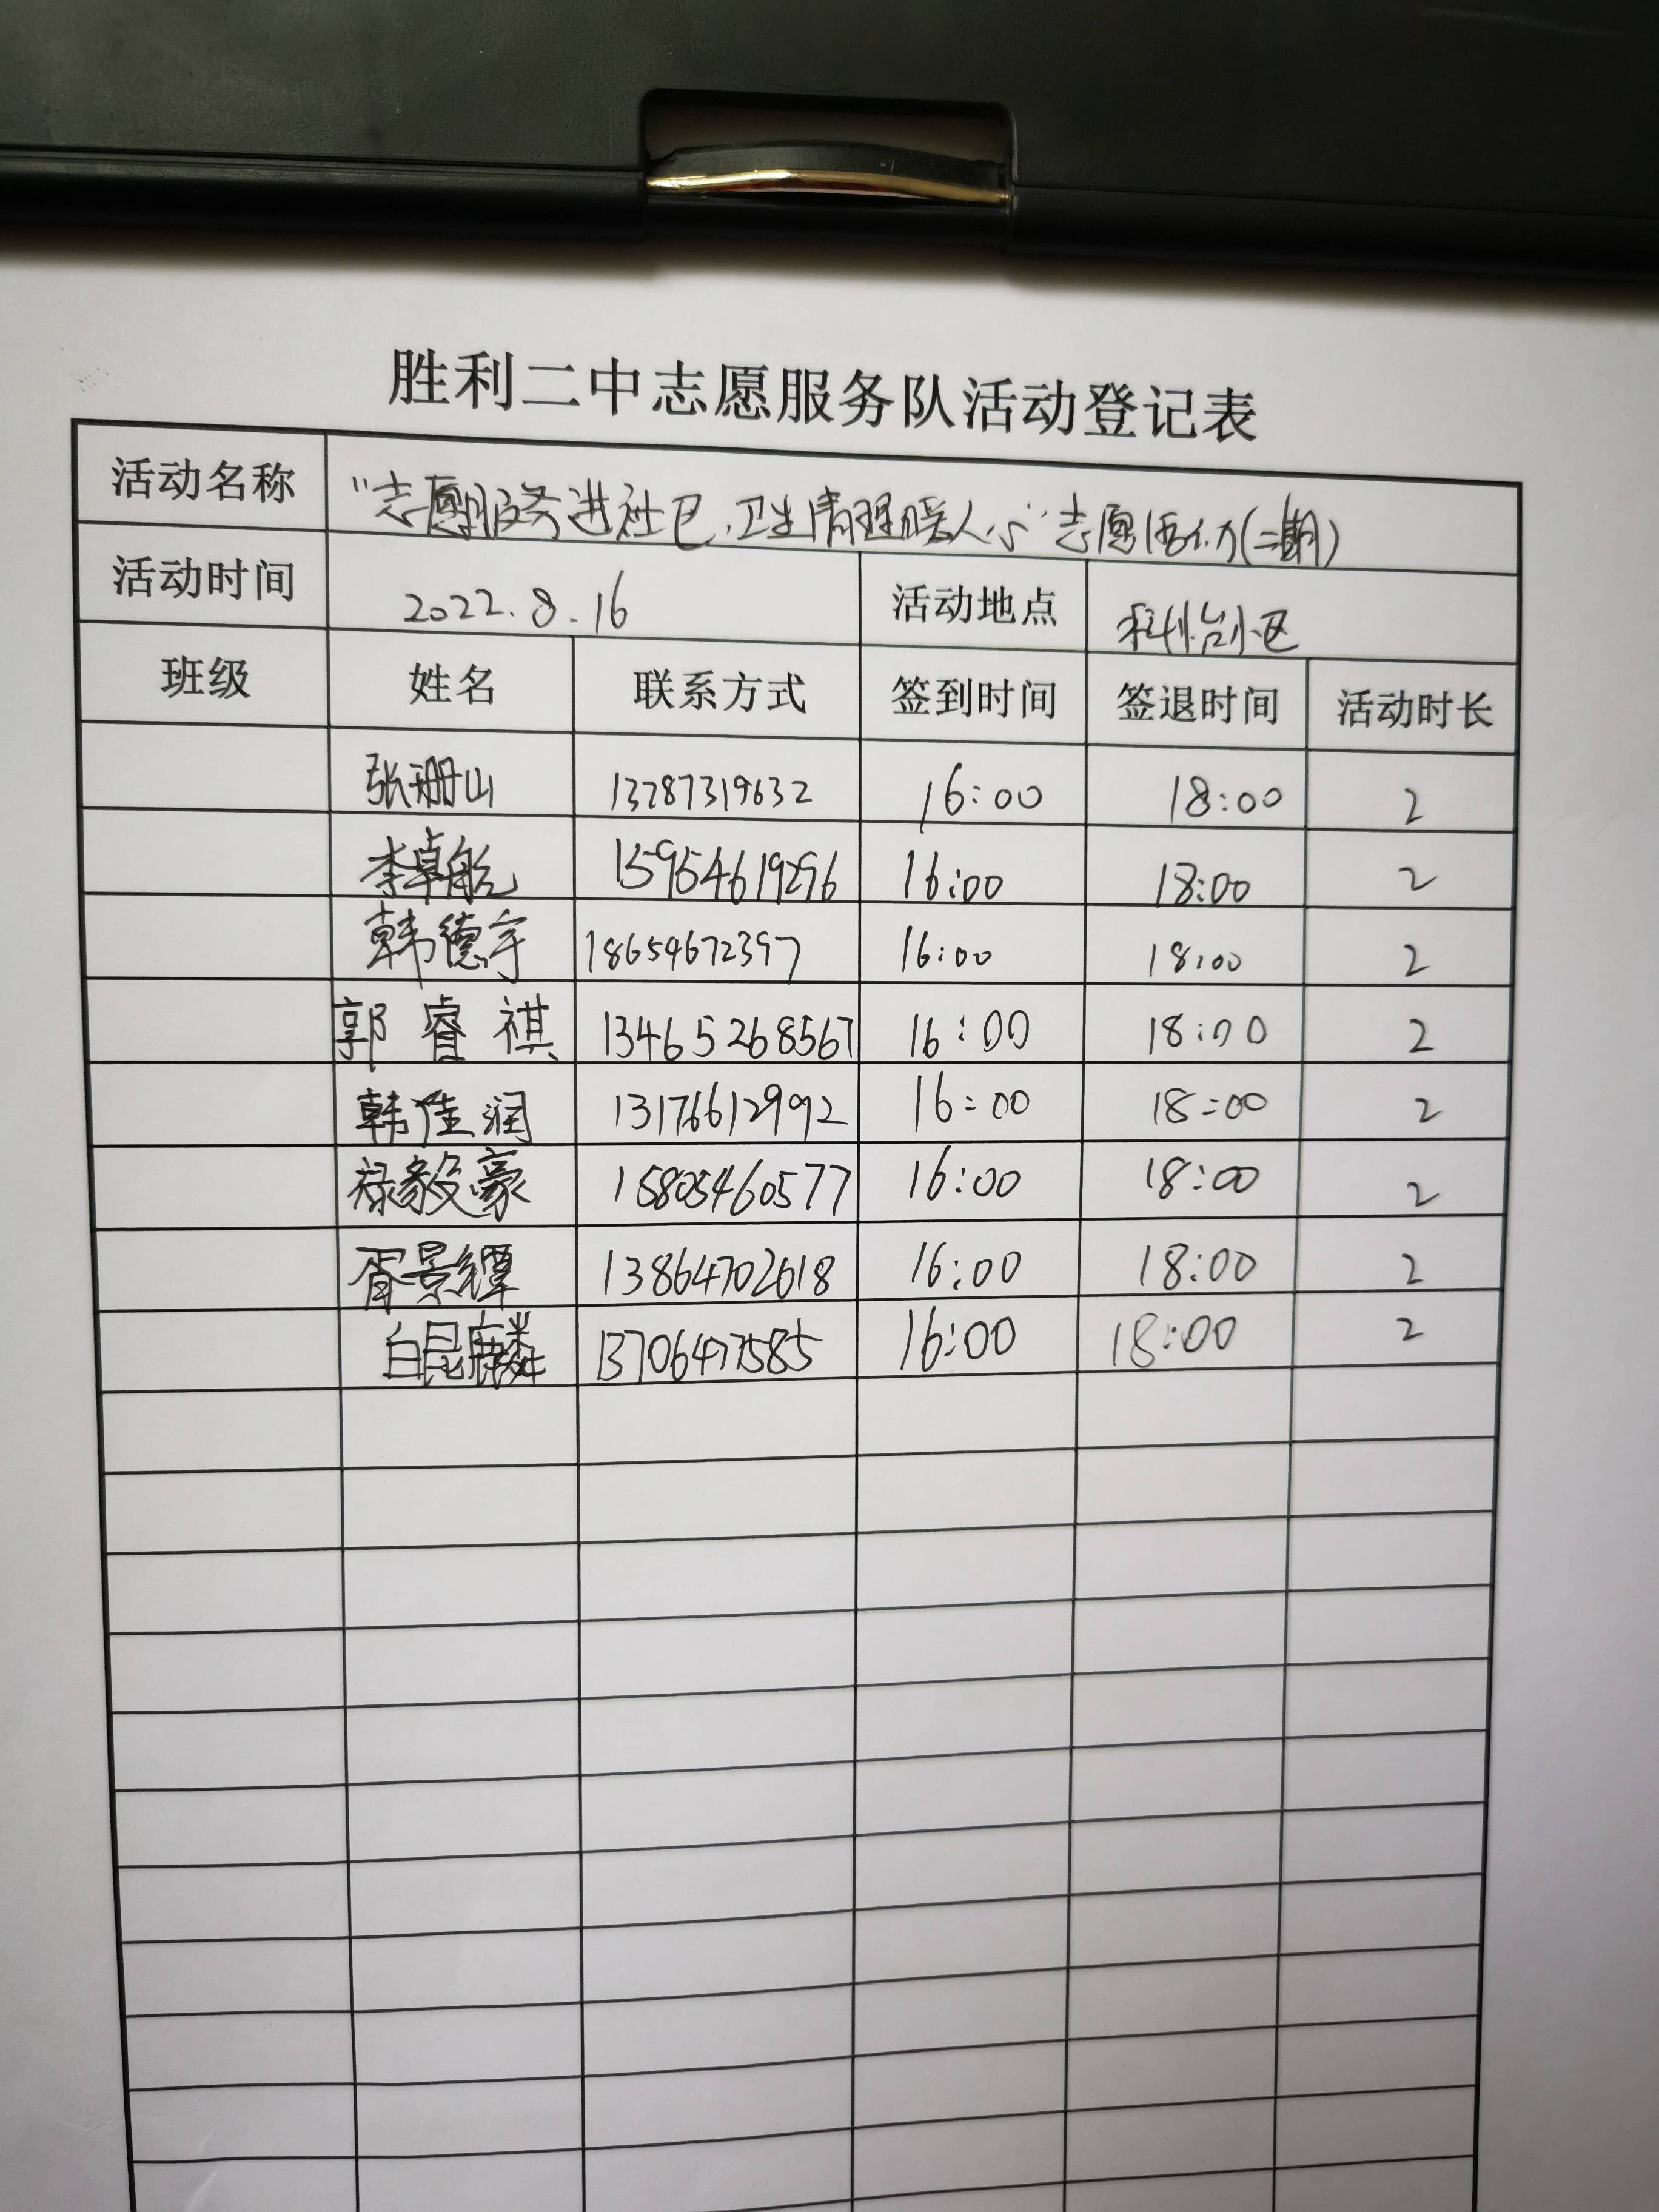 胜利二中志愿服务队活动登记表
活动名称 “志愿服务进社区,卫生清理暖人心”志愿活动(二期)
活动时间 2022.8.16 活动地点 小区
班级 姓名 联系方式 签到时间 签退时间 活动时长
张珊山 13287319632 16:00 18:00 2
李卓航 15954619296 16:00 18:00 2
韩德宇 18654672397 16:00 18:00 2
郭睿祺 13465268567 16:00 18:00 2
韩佳润 13176612992 16:00 18:00 2
禄毅豪 15805460577 16:00 18:00 2
胥景 13864702618 16:00 18:00 2
白昆麟 13706477585 16:00 18:00 2